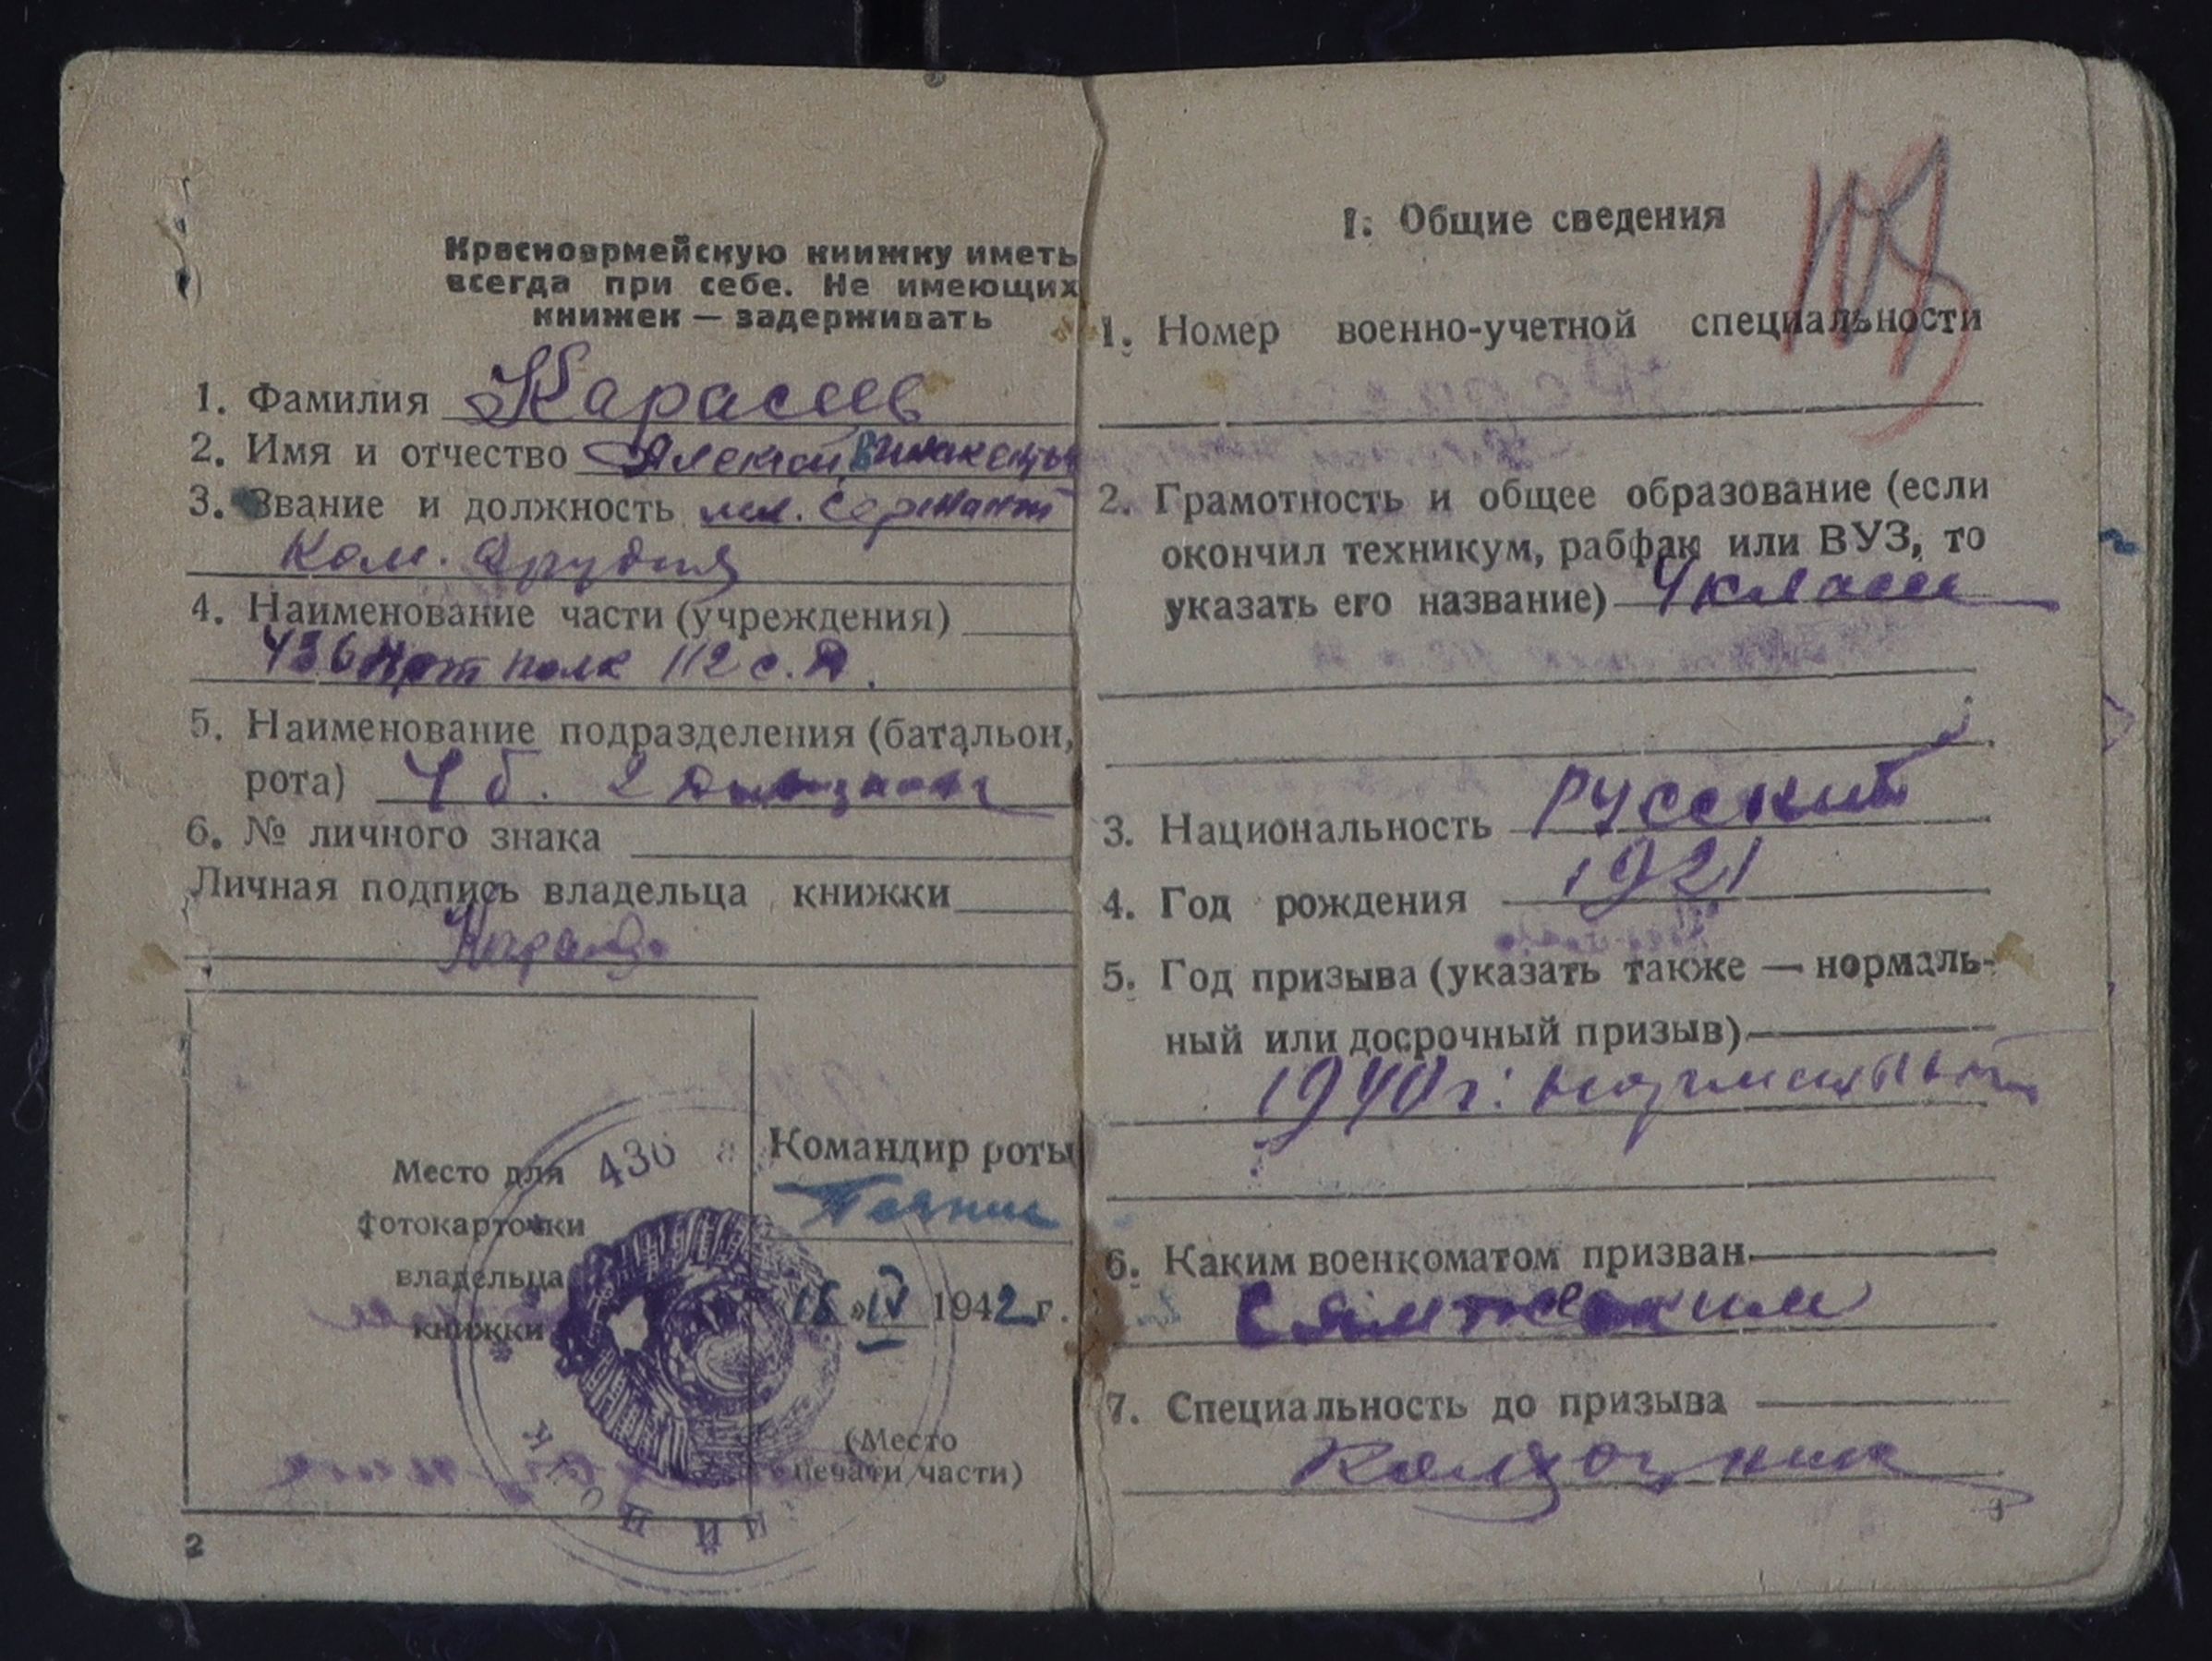 Красноармейскую книжку иметь
всегда при себе. Не имеющих
книжек — задерживать
1. Фамилия Карасев
2. Имя и отчество Алексей
3. Звание и должность мл. Сержант
Ком. Орудия
4. Наименование части (учреждения)
436 Арт полк 112 с. Д.
5. Наименование подразделения (батальон,
рота) 4 б. 2 Дивизион
6. № личного знака
Личная подпись владельца книжки
Место для
фотокарточки
владельца
книжки
436
Командир роты
IV 1942 г.
(Место
печати части)
2
I. Общие сведения
1. Номер военно-учетной специальности
2. Грамотность и общее образование (если
окончил техникум, рабфак или ВУЗ, то
указать его название) 4 класса
3. Национальность Русский
4. Год рождения 1921
5. Год призыва (указать также — нормаль-
ный или досрочный призыв)
1940 г. нормальный
6. Каким военкоматом призван
Сямженским
7. Специальность до призыва
Колхозник